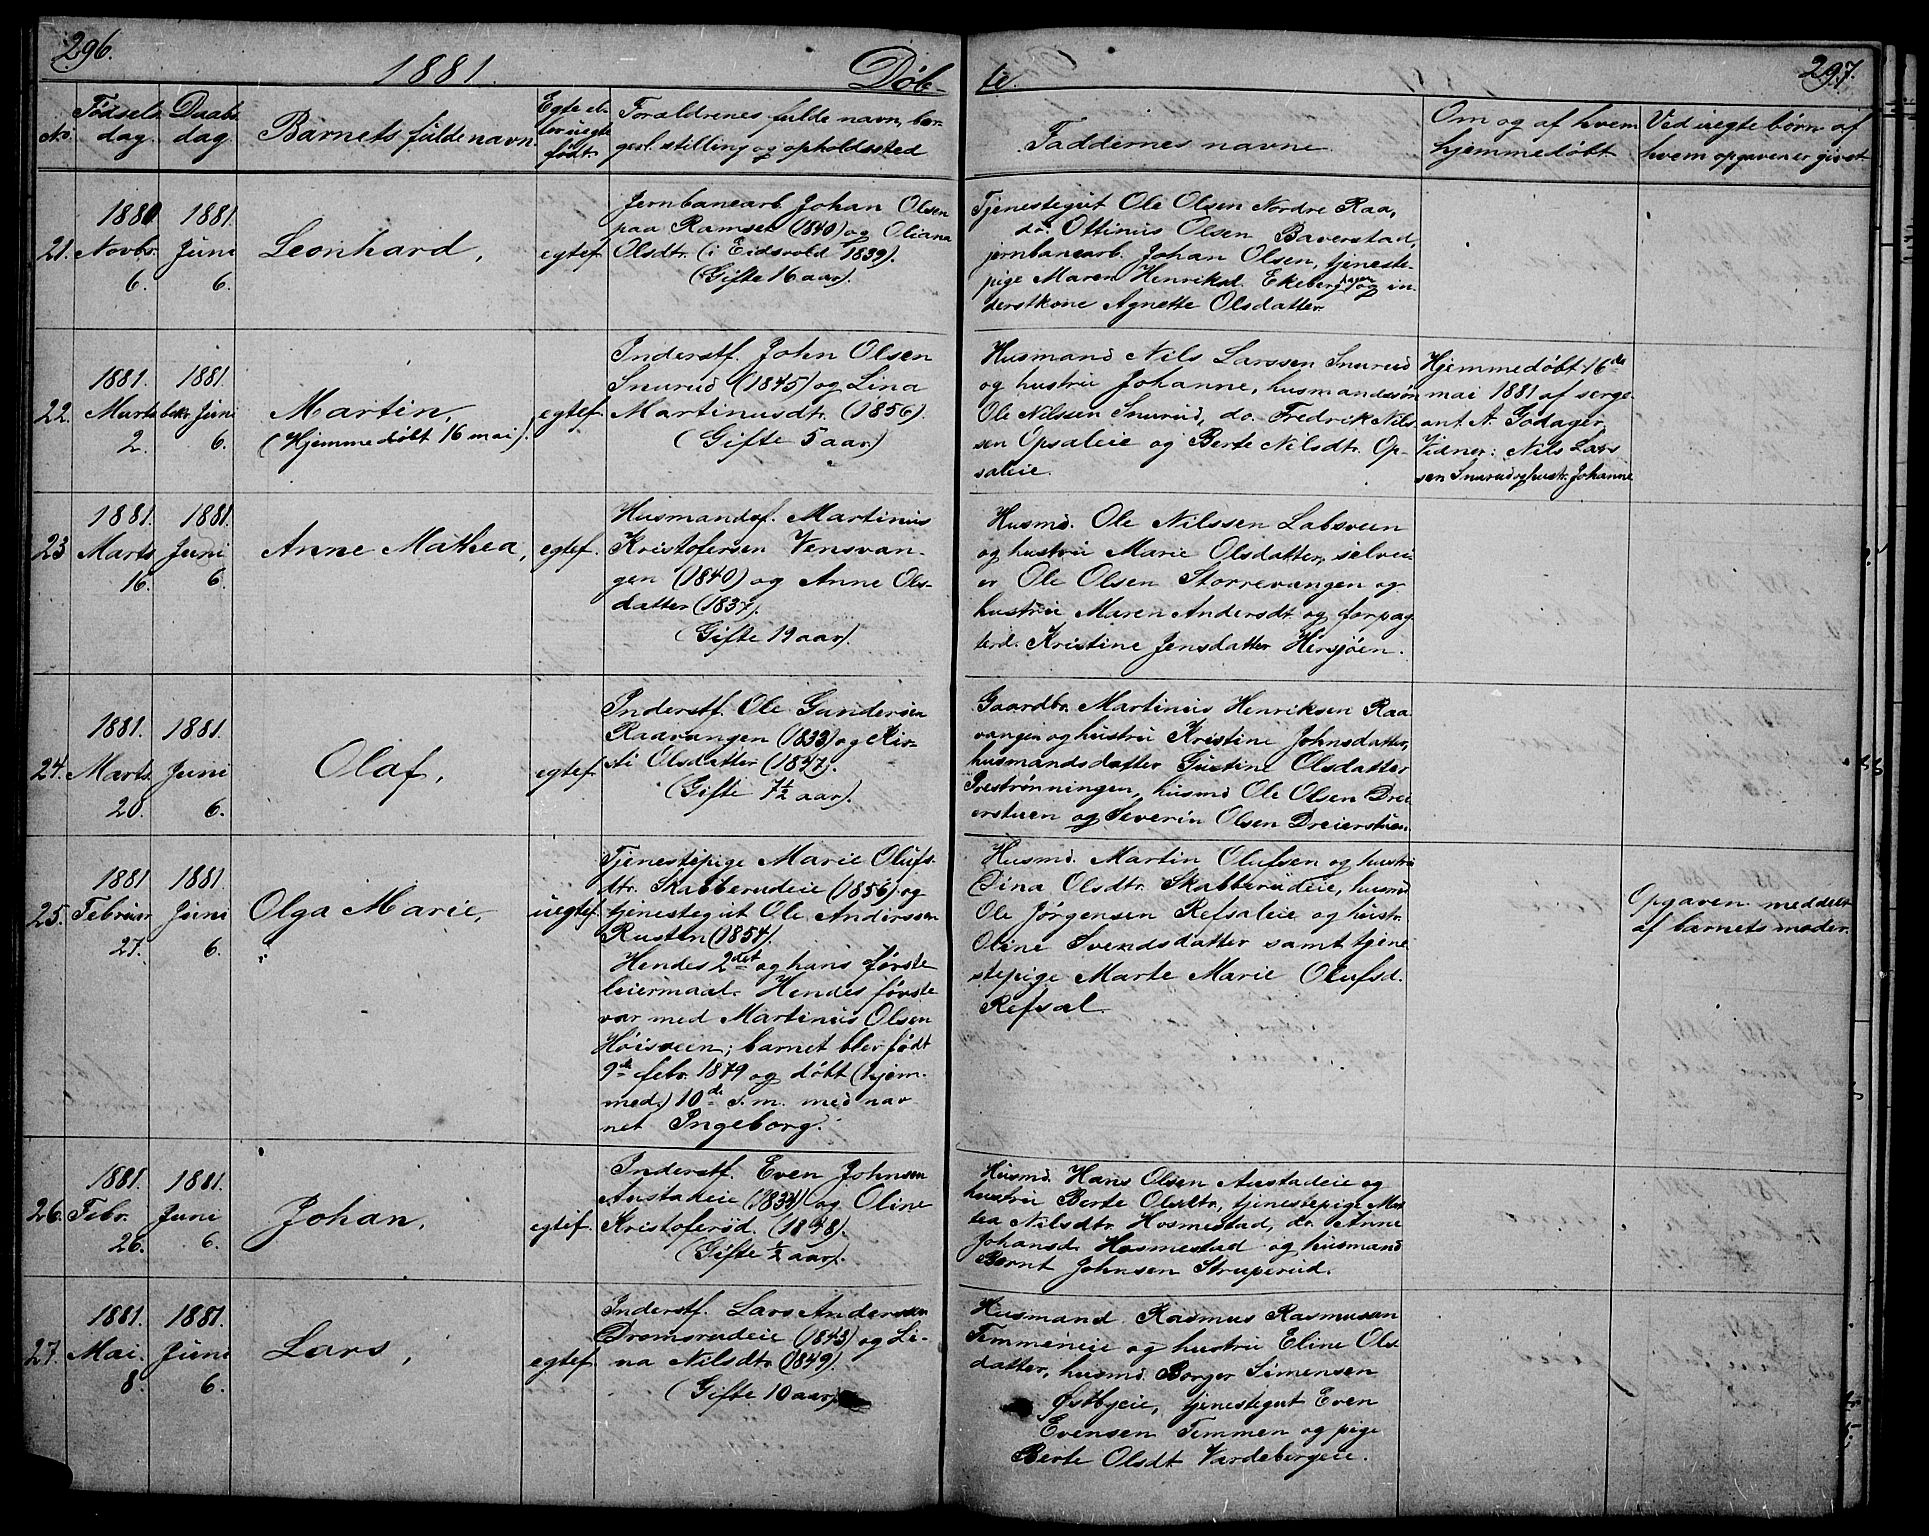 296.
1881.
Døb-
No.
Fødsels
dag.
Daabs
dag
Barnets fulde navn.
Egte el-
ler uegte
født.
Forældrenes fulde navn, bor-
gerl. stilling og opholdssted
21.
1880
Novbr.
6.
1881.
Juni
6.
Leonhard,
egtef.
Jernbanearb. Johan Olsen
paa Ramsen (1840) og Oliana
Olsdtr. (i Eidsvold 1839).
(Gifte 16 aar).
22.
1881.
Marts
2.
1881.
Juni
6.
Martin,
(Hjemmedøbt 16 mai).
egtef.
Inderstf. John Olsen
Snurud (1845) og Lina
Martinusdtr. (1856).
(Gifte 5 aar.)
23
1881.
Marts
16.
1881.
Juni
6.
Anne Mathea,
egtef.
Husmandsf. Martinus
Kristofersen Vensvan-
gen (1840) og Anne Ols-
datter (1837).
(Gifte 19 aar).
24.
1881.
Marts
20.
1881.
Juni
6.
Olaf,
egtef.
Inderstf. Ole Gundersen
Raavangen (1833) og Kir-
sti Olsdatter (1847).
(Gifte 7½ aar).
25.
1881
Februar
27.
1881.
Juni
6.
Olga Marie,
uegtef.
Tjenestepige Marie Olufs-
dtr. Skabberudeie (1856) og
tjenestegut Ole Anderssen
Rusten (1854).
Hendes 2det og hans første
leiermaal. Hendes første
var med Martinus Olsen
Høisveen; barnet blev født
9de febr. 1879 og døbt (hjem-
med.) 10de s. m. med nav-
net Ingeborg.
26.
1881.
Febr.
26.
1881.
Juni
6.
Johan,
egtef.
Inderstf. Even Johnsen
Austadeie (1834) og Oline
Kristofersd. (1848).
(Gifte ½ aar).
27.
1881.
Mai.
8.
1881.
Juni
6.
Lars,
egtef.
Inderstf. Lars Anderssen
Dromsrudeie (1843) og Li-
na Nilsdtr. (1849).
(Gifte 10 aar)
297.
te.
Faddernes navne
Om og af hvem
hjemmedøbt
Ved uegte børn af
hvem opgaven er givet
Tjenestegut Ole Olsen Nordre Raa,
do. Ottinus Olsen Baverstad,
jernbanearb. Johan Olsen, tjeneste-
pige Maren Henriksd. Ekeberghagen og in-
derstkone Agnette Olsdatter.
Husmand Nils Larssen Snurud
og hustru Johanne, husmandssøn
Ole Nilssen Snurud, do. Fredrik Nils-
sen Opsaleie og Berte Nilsdtr. Op-
saleie.
Hjemmedøbt 16de
mai 1881 af serge-
ant A. Godager.
Vidner: Nils Lars
sen Snurud og hustr. Johanne
Husmd. Ole Nilssen Labsveen
og hustru Marie Olsdatter, selvei-
er Ole Olsen Storrevangen og
hustru Maren Andersdtr. og forpag-
terd. Kristine Jensdatter Hersjøen.
Gaardbr. Martinus Henriksen Raa-
vangen og hustru Kristine Johnsdatter,
husmandsdatter Gustine Olsdatter
Prestrønningen, husmd Ole Olsen Drei-
erstuen og Severin Olsen Dreierstuen.
Husmd. Martin Olufsen og hustru
Dina Olsdtr. Skabberudeie, husmd.
Ole Jørgensen Refsaleie og hustr.
Oline Svendsdatter samt tjene-
stepige Marte Marie Olufsd.
Refsal.
Opgaven meddelt
af barnets moder.
Husmd. Hans Olsen Austadeie og
hustru Berte Olsdtr., tjenestepige Mar-
tea Nilsdtr. Hosmestad, do. Anne
Johansd. Hosmestad og husmand
Bernt Johnsen Struperud.
Husmand Rasmus Rasmusen
Timmeneie og hustru Eline Ols-
datter, husmd. Borger Simensen
Østbyeie, tjenestegut Even
Evensen Timmen og pige
Berte Olsdt. Vardebergeie.